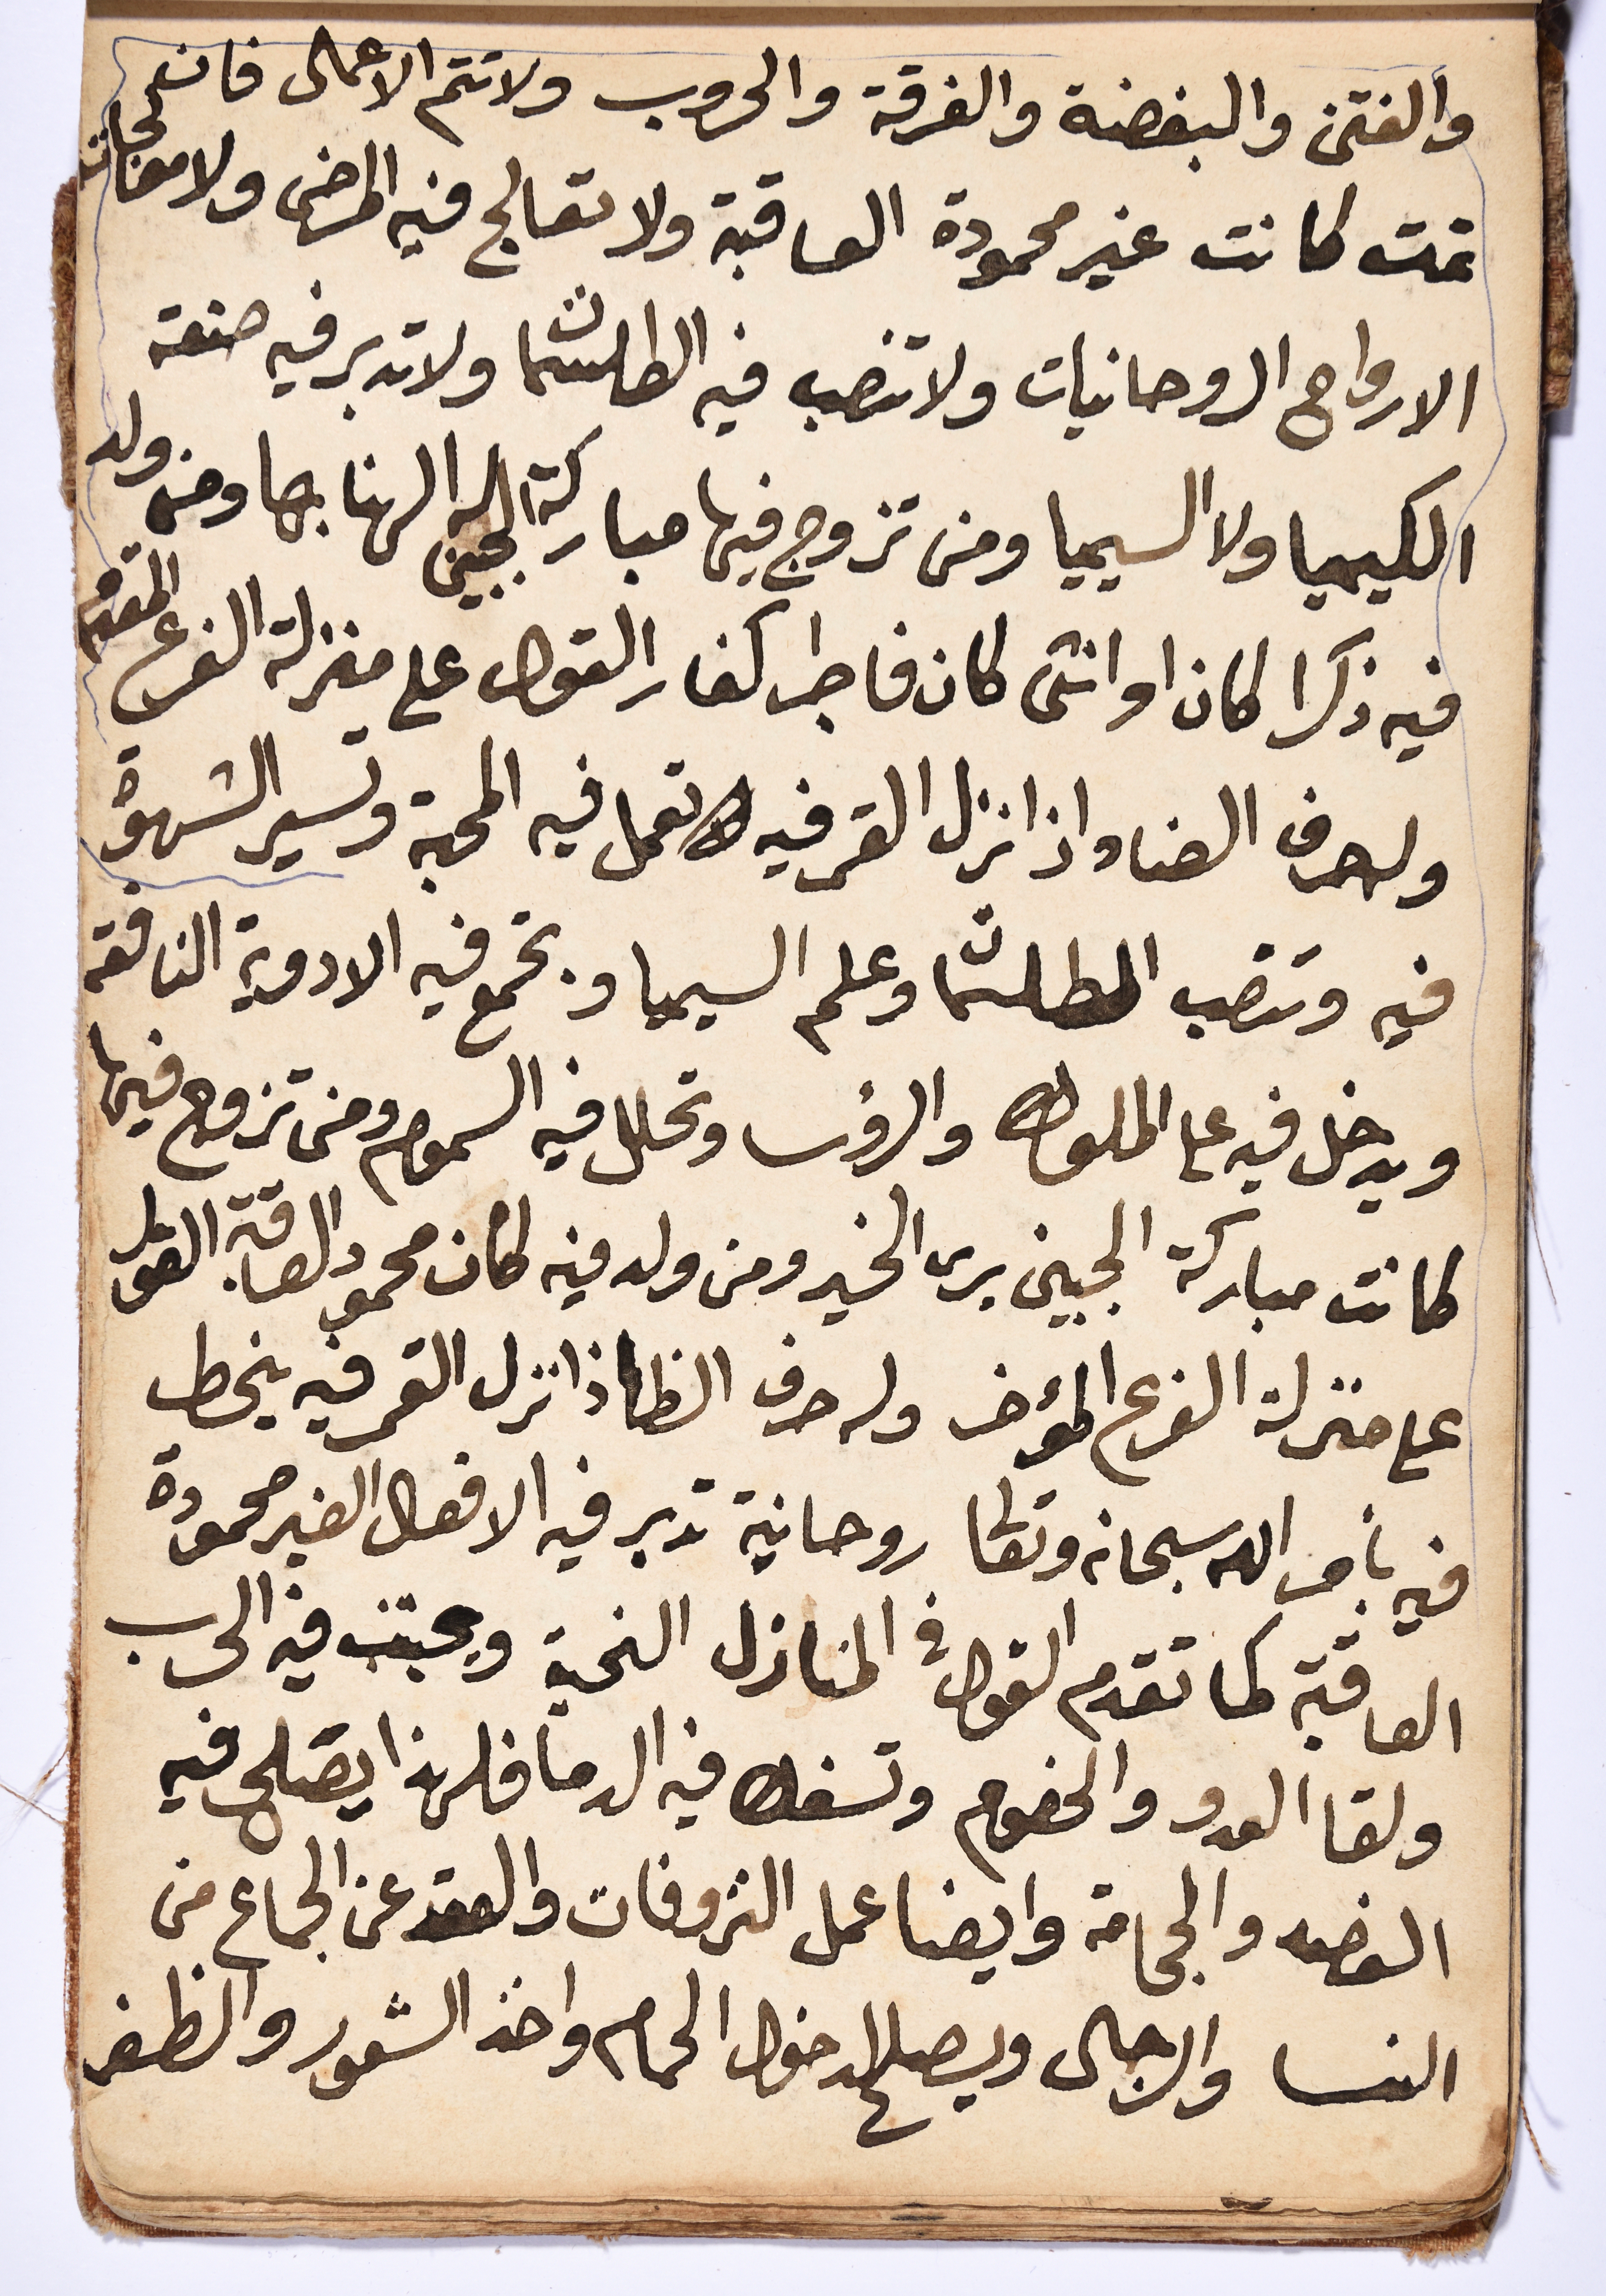 والفتن والبغضة والفرقة والحروب ولا تتم الاعمال فان
تمت كانت غير محمودة العاقبة ولا تعالج فيه المرضى ولا معالجات
الارواح الروحانيات ولا تنصب فيه الطلسمات ولا تدبر فيه صنعة
الكيميا ولا السيميا ومن تزوج فيها مباركة الجبين الهنا بها ومن ولد
فيه ذكرا كان او انثى كان فاجرا كفار القول على منزلة الفرع المقدم
وله حرف الضاد اذا نزل القمر فيه لا تعمل فيه المحبة وتسير الشهوة
فيه وتنصب الطلسمات وعلم السيميا وتجمع فيه الادوية النافعه
ويدخل فيه على الملوك والرؤسا وتحلل فيه السموم ومن تزوج فيها
كانت مباركة الجبين يرى الخير ومن ولد فيه كان محمود العاقبة القول
على منزلة الفرع المؤخر وله حرف الظا اذا نزل القمر فيه ينحط
فيه بامر الله سبحانه وتعالى روحانية تدبر فيه الافعال الغير محمودة
العاقبة كما تقدم القول في المنازل النحية ويجتنب فيه الحرب
ولقا العدو والخصوم وتسفك فيه الدما فلهذا يصلح فيه
الفصد والحجامة وايضا عمل النزوفات والعقد عن الجماع من
النسا والرجال ويصلح لدخول الحمام واخذ الشعور والظفر